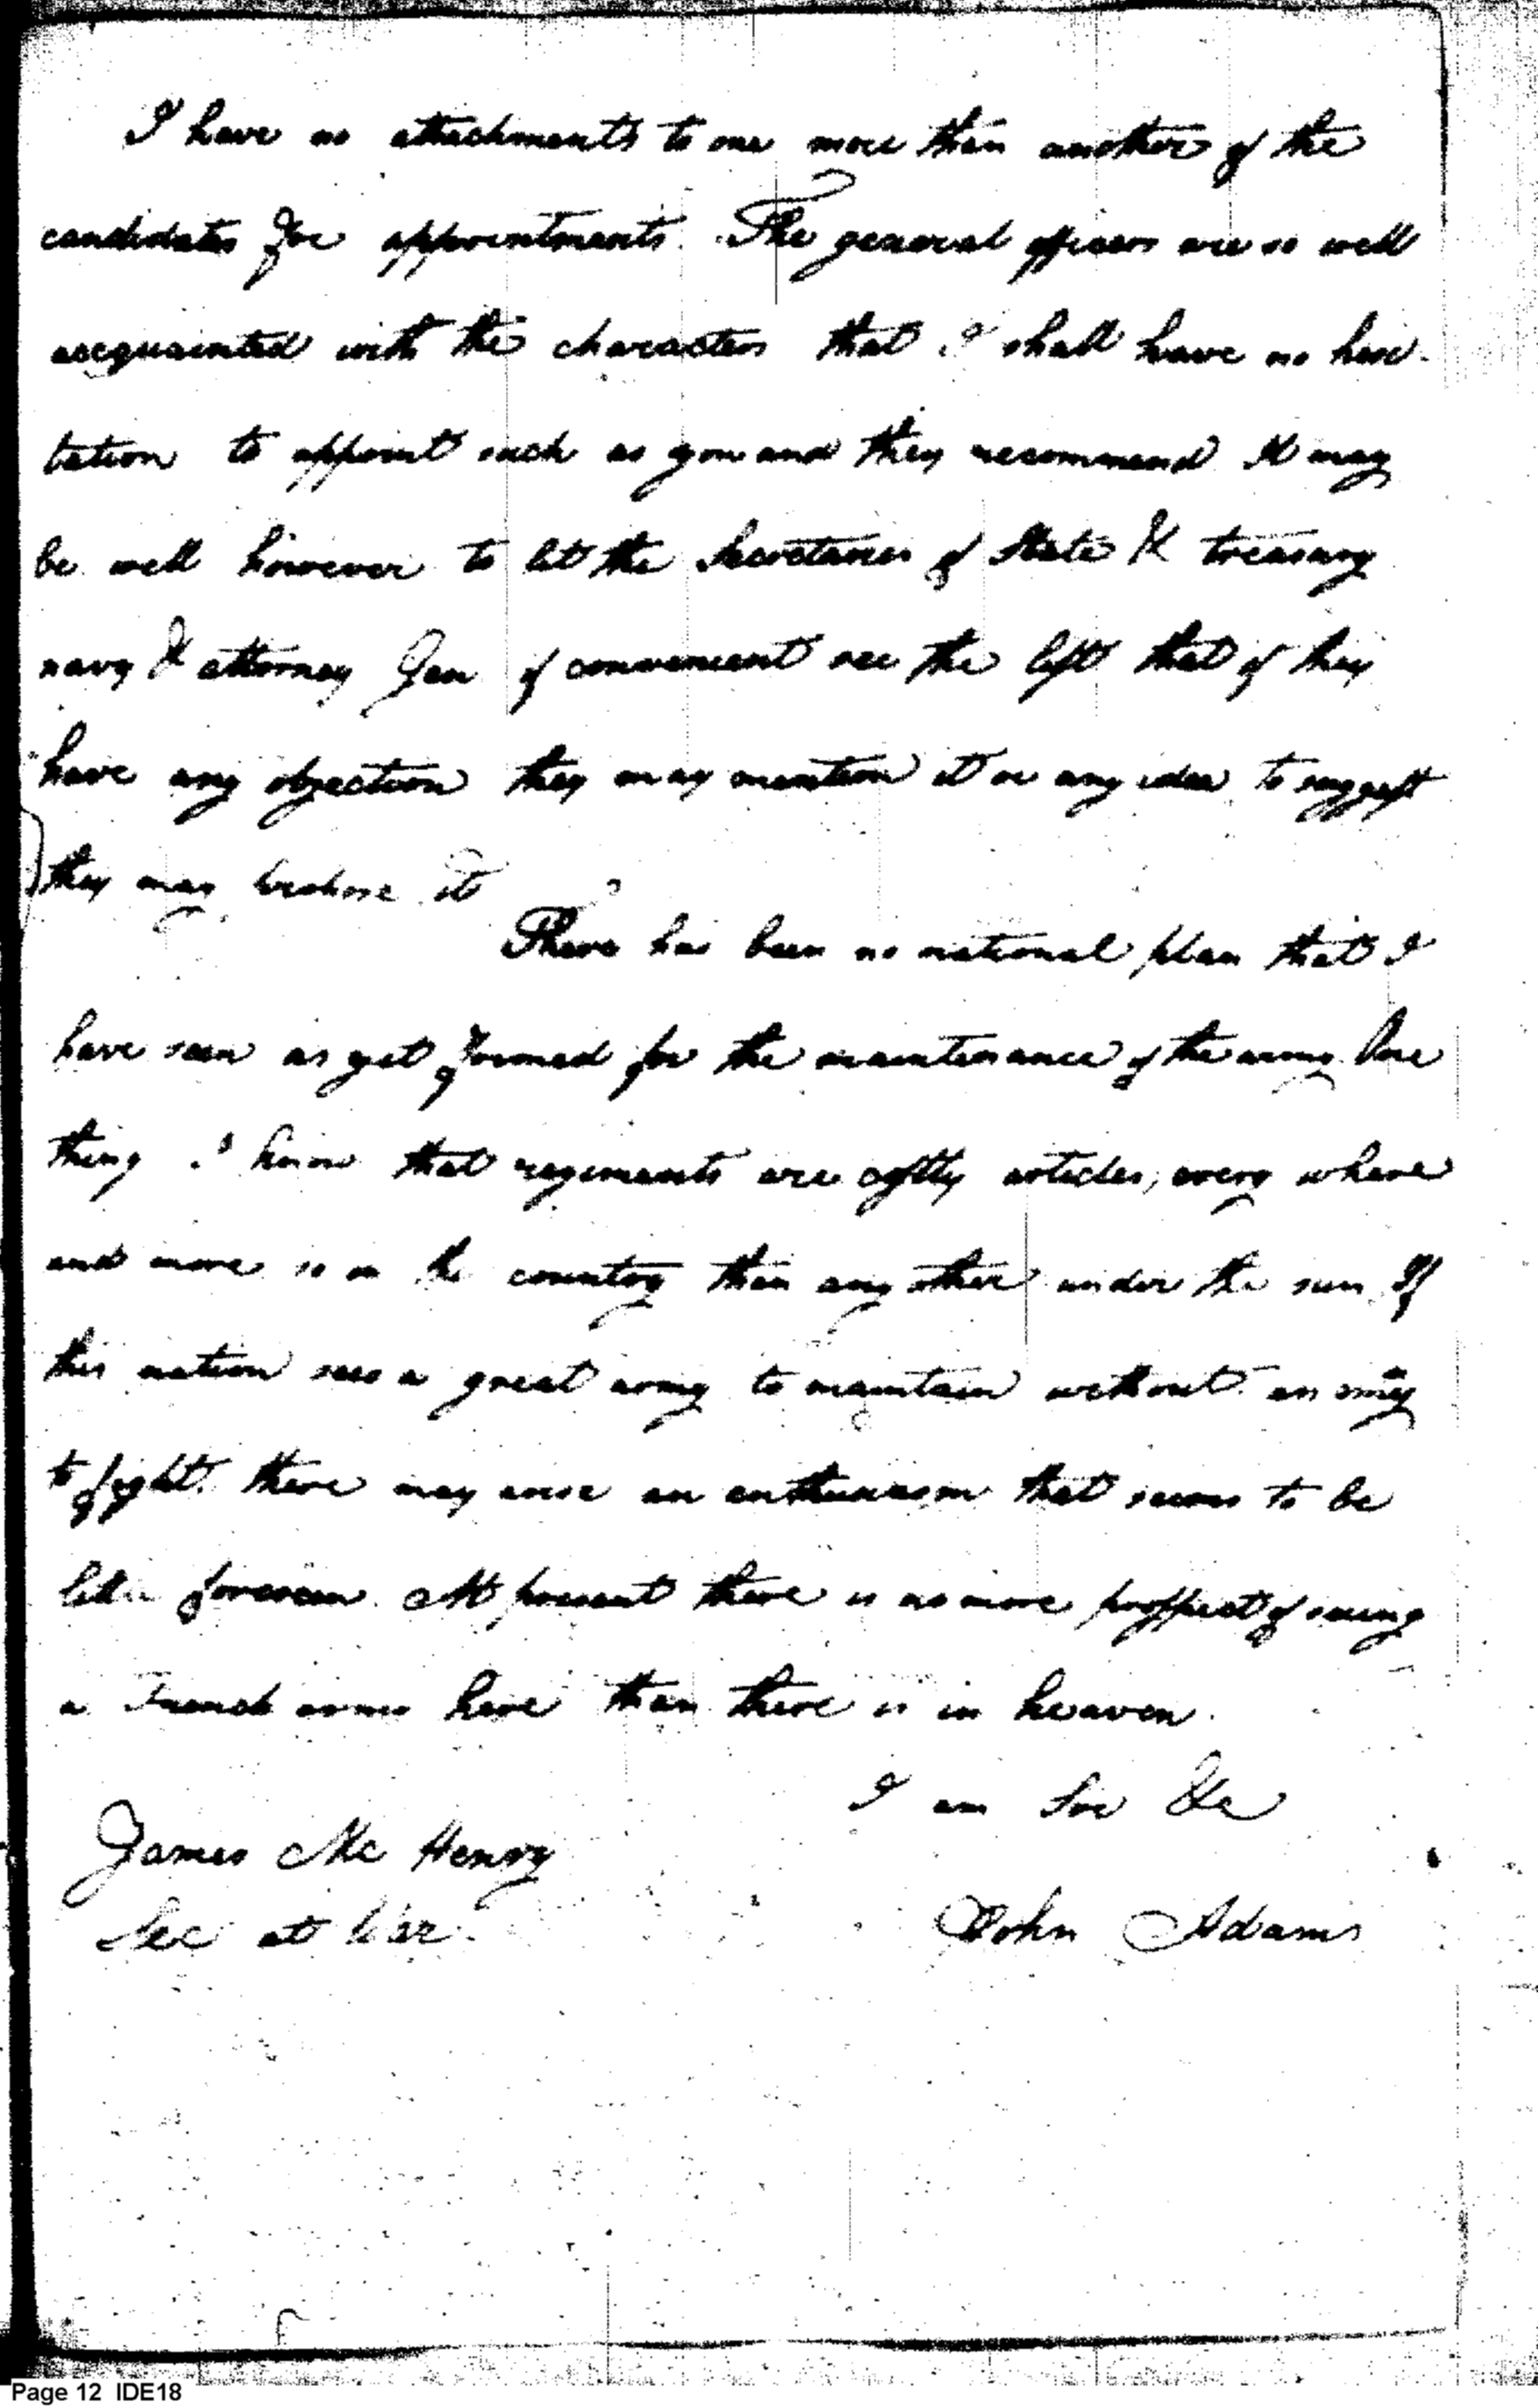 I have no attachments to one more than another of the
candidates for appointments. The general officers are so well
accquainted with the characters that I shall have no hesi-
tation to appoint such as you and they recommend It may
be well however to let the Secretaries of State & treasury
navy & attorney Gen if convenient see the list that if they
have any objection they may mention it or any idea to suggest
they may it
There has been no national plan that I
have seen as yet formed for the maintenance of the army. One
thing I know that regiments are costly articles, every where
and more so in the country than any other under the sun If
this nation sees a great army to maintain without an enemy
to fight. there may arise an enthusiasm that seems to be
little foreseen. At present there is no more prospect of seeing
a French army here than there is in heaven.
I am Sir &c
James Mc Henry
Sec at War.
John Adams
Page 12 IDE18